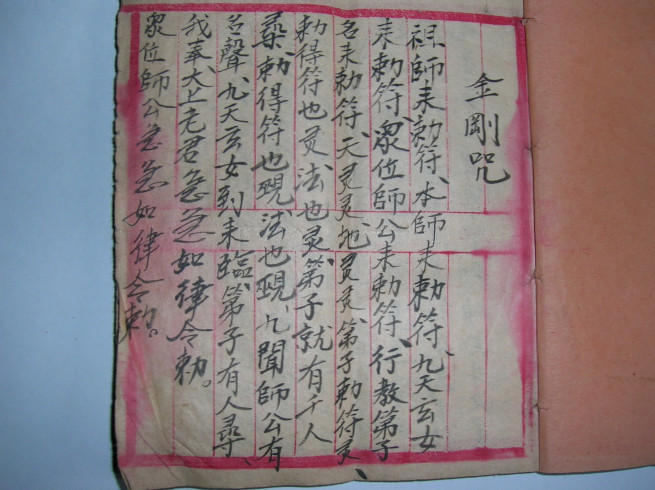 金剛咒
祖師耒勅符、本師耒勅符、九天玄女
耒勅符、眾位師公耒勅符、行教第子
名耒勅符、天灵灵地灵灵、第子勅符灵
勅得符也灵法也灵、第子就有千人
勅得符也現法也現、九聞師公有
名聲、九天玄女到耒臨、第子有人尋
我奉太上老君急急如律令勅。
眾位師公急急如律令勅。